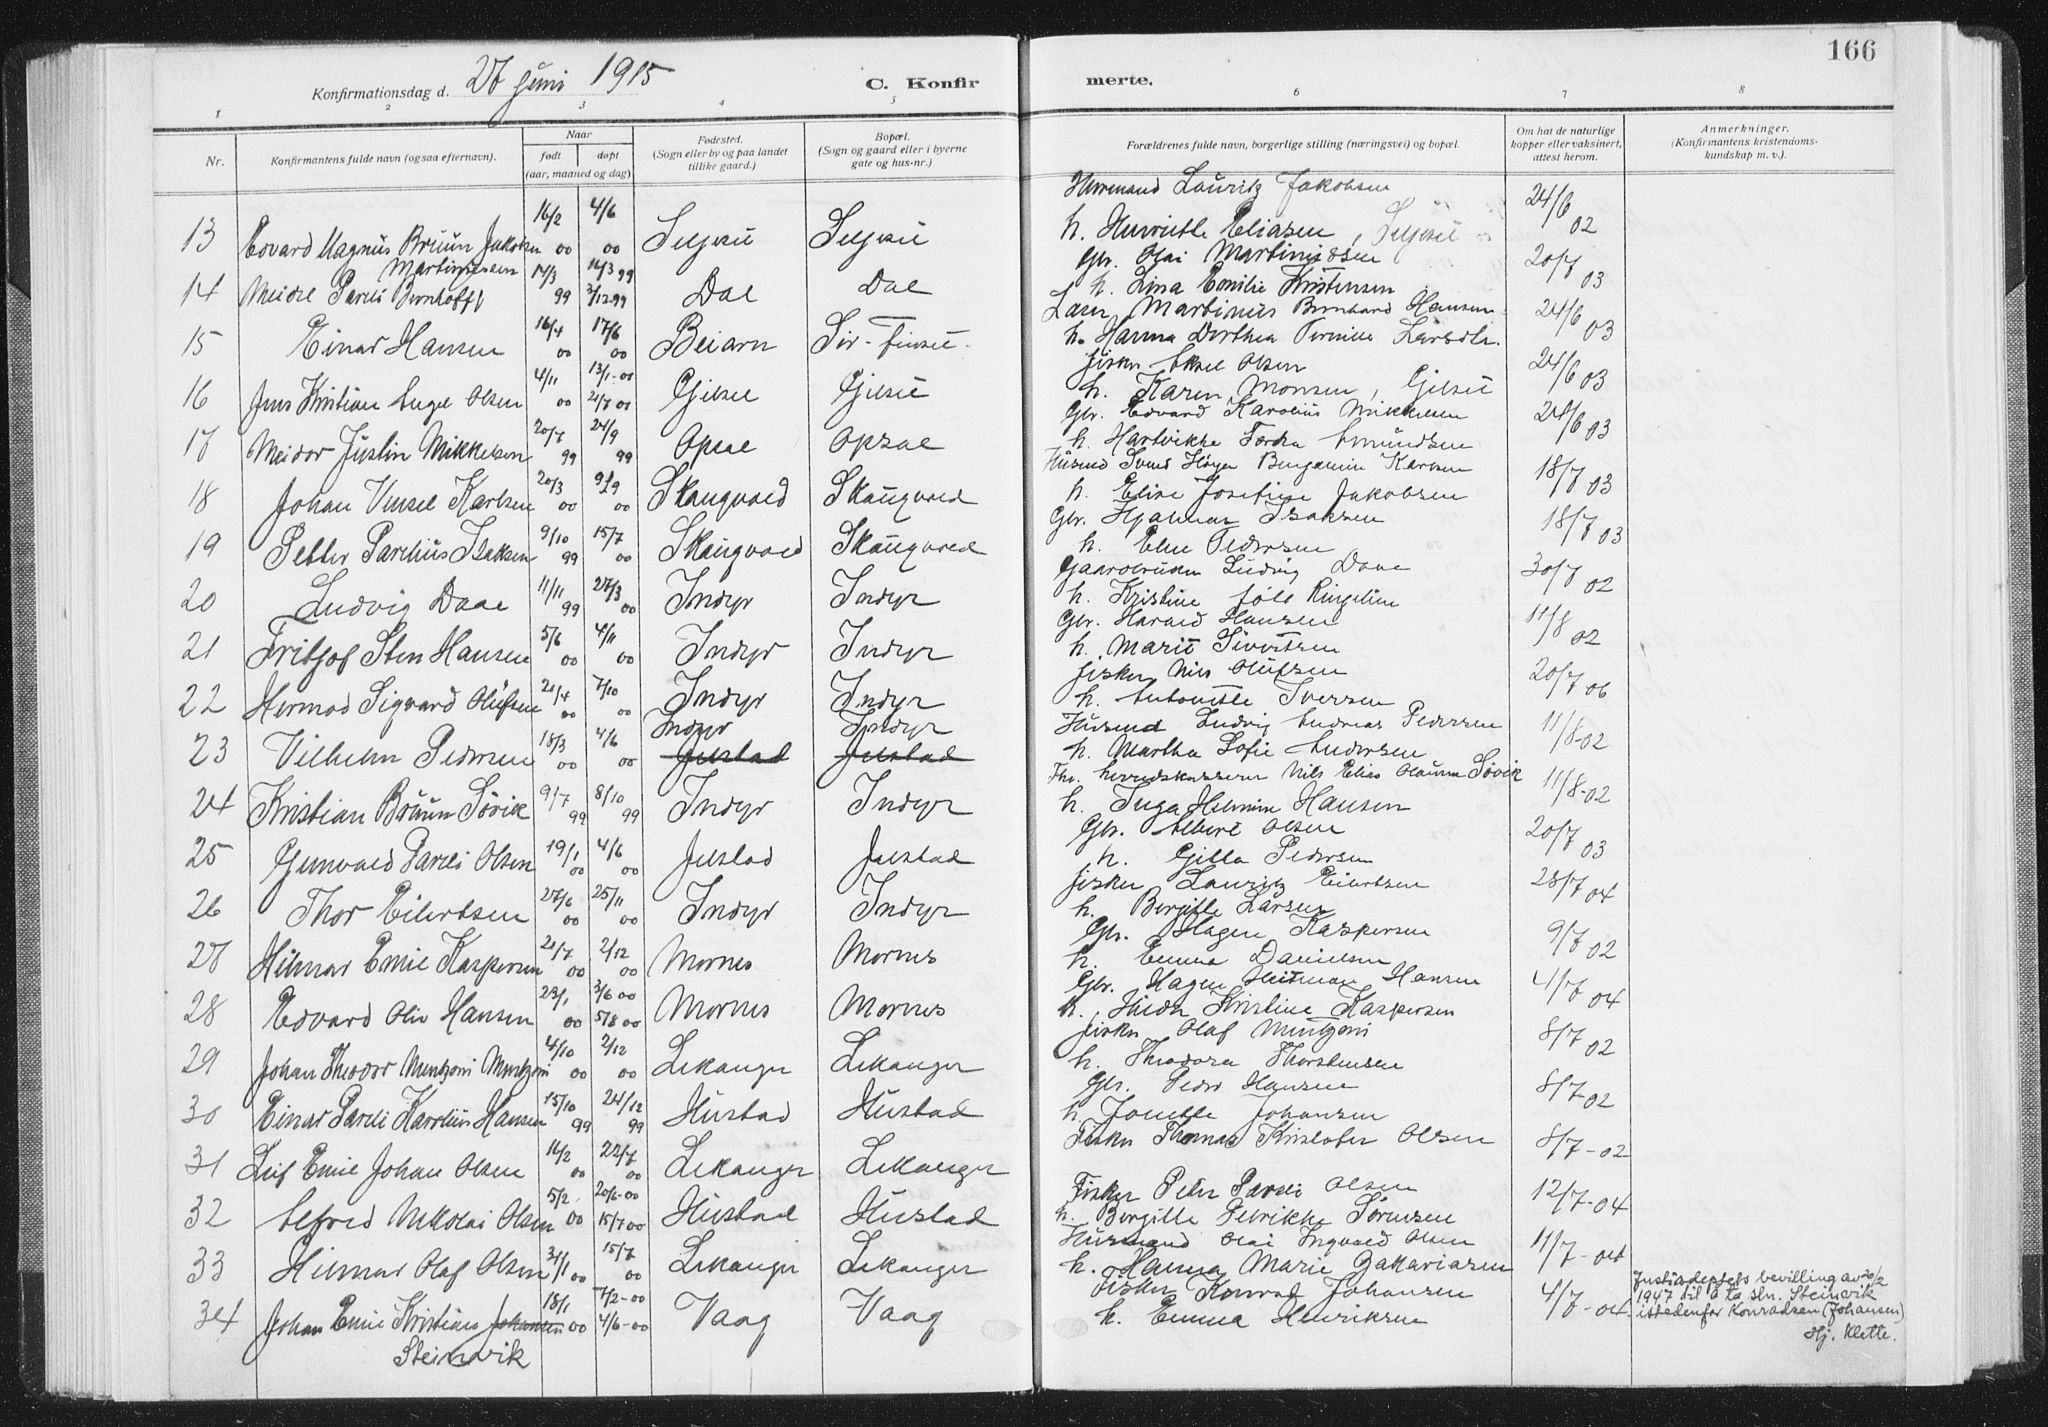 166
Konfirmationsdag d. 27 juni 1915
C. Konfir merte.
1 2 3 4 5 6 7 8
Nr.
Konfirmantens fulde navn (ogsaa efternavn).
Naar
født døpt
(aar, maaned og dag)
Fødested.
(Sogn eller by og paa landet
tillike gaard.)
Bopæl.
(Sogn og gaard eller i byerne
gate og hus-nr.)
Forældrenes fulde navn, borgerlige stilling (næringsvei) og bopæl.
Om hat de naturlige
kopper eller vaksinert,
attest herom.
Anmerkninger.
(Konfirmantens kristendoms-
kundskap m. v.).
13 Edvard Magnus Bruun Jakobsen 16/2 00 4/6 00 Selsøu Selsøu Lauritz Jakobsen
h. Henriette Eliasen, 24/6 02
14 Meidel Pareli Bernhoff Martinussen 14/3 99 16/3 99 3/12 99 Dal Dal Gbr. Olai Martinussen
h. Lina Emilie Kristensen 20/7 03
15 Einar Hansen 16/4 00 17/6 00 Beiarn Martinus Bernhard Hansen
h. Hanna Dorthea Pernille Larsdtr. 24/6 03
16 Jens Kristian Angel Olsen 4/11 00 13/1-01 21/7 01 Fisker Aksel Olsen
h. Karen Monsen, 24/6 03
17 Meidor Justin Mikkelsen 20/7 99 24/9 99 Opsal Opsal Gbr. Edvard Karolius Mikkelsen
h. Hartvikke Amundsen 24/6 03
18 Johan Karlsen 20/3 00 9/9 00 Skaugvold Skaugvold Husmd Svend Høyer Benjamin Karlsen
h. Elise Josefine Jakobsen 18/7 03
19 Petter Parelius Isaksen 9/10 99 15/7 00 Skaugvold Skaugvold Gbr. Hjalmar Isaksen
h. Eline Pedersen 18/7 03
20 Ludvig Daae 11/11 99 27/3 00 Indyr Indyr Gaardbruker Ludvig Daae
h. Kristine 30/7 02
21 Fritjof Sten Hansen 5/6 00 4/11 00 Indyr Indyr Gbr. Harald Hansen
h. Marit Sivertsen 11/8 02
22 Hermod Sigvard Olufsen 21/4 00 7/10 00 Indyr Indyr Fisker Nils Olufsen
h. Antonette Iversen 20/7 06
23 Vilhelm Pedersen 18/3 00 4/6 00 Indyr Jelstad Indyr Jelstad Husmd Ludvig Andreas Pedersen
h. Martha Sofie Andersen 11/8-02
24 Kristian Bruun Sövik 9/7 99 8/10 99 Indyr Indyr Fhv. herredskasserer Nils Elias Olaus Sövik
h. Inga Helmine Hansen 11/8-02
25 Gunvald Pareli Olsen 19/1 00 4/6 00 Jelstad Jelstad Gbr. Albert Olsen
h. Gitta Pedersen 20/7 03
26 Thor Eilertsen 27/6 00 25/11 00 Indyr Indyr Fisker Lauritz Eilertsen
h. Bergitte Larsen 28/7 04
27 Hilmar Emil Kaspersen 21/7 00 2/12 00 Mornes Mornes Gbr. Hagen Kaspersen
h. Emma Danielsen 9/7 02
28 Edvard Oliv Hansen 23/1 00 3/6 00 5/8 00 Mornes Mornes Gbr. Hagen Heitman Hansen
h. Hilda Kristine Kaspersen 4/7 04
29 Johan Theodor Mentzoni Mentzoni 4/10 00 2/12 00 Lekanger Lekanger Fisker Olaf Mentzoni
h. Theodora Thorstensen 8/7 02
30 Einar Pareli Karolius Hansen 15/10 99 24/12 99 Hustad Hustad Gbr. Peder Hansen
h. Jonette Johansen 8/7-02
31 Leif Emil Johan Olsen 16/2 00 22/7 00 Lekanger Lekanger Fisker Thomas Kristofer Olsen 8/7-02
32 Alfred Nikolai Olsen 5/2 00 20/6-00 15/7 00 Hustad Hustad Fisker Peter Pareli Olsen
h. Bergitte Petrikke Sørensen 12/7-04
33 Hilmar Olaf Olsen 31/1 00 15/7 00 Lekanger Lekanger Husmand Olai Ingvald Olsen
h. Hanna Marie Zakariasen 11/7-04
34 Johan Emil Kristian Johansen 18/1 00 7/2-00 4/6-00 Vaag Vaag Fisker Konrad Johansen
Steinvik h. Emma Henriksen 4/7-04
Justisdeptets bevilling av 20/2
1947 til å ta sln. Steinvik
istedenfor Konradsen (Johansen)
Hj. Klette.